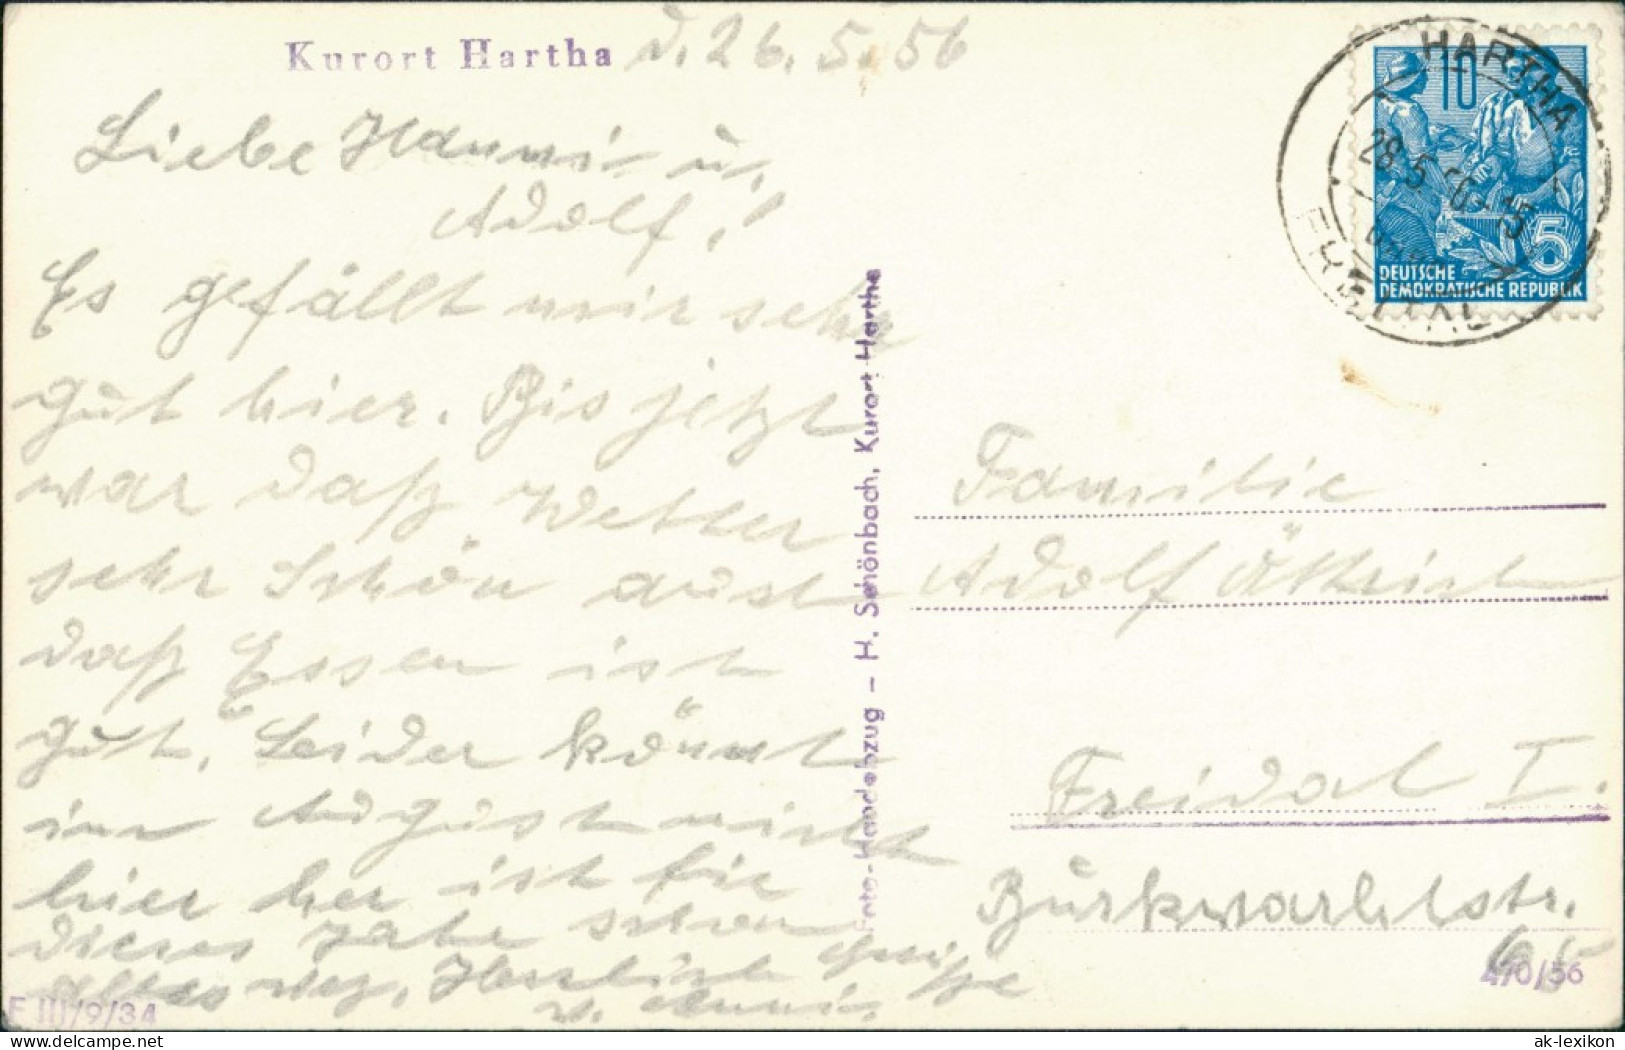 Kurort Hartha d. 26. 5. 56
Liebe Hanni u.
Adolf!
Es gefällt mir sehr
gut hier. Bis jetzt
war daß Wetter
sehr Schön auch
daß Essen ist
gut. Leider könnt
im August nicht
hier her ist für
dieses Jahr schon
alles weg. Herzlich grüße
v.
F III/9/34
Foto-Handabzug - H. Schönbach, Kurort Hartha
HARTHA
28.5.56-15
FREITAL
10
5
DEUTSCHE
DEMOKRATISCHE REPUBLIK
Familie
Adolf
Freidal I.
Burkwarthstr.
65
4/0/56
ak-lexikon